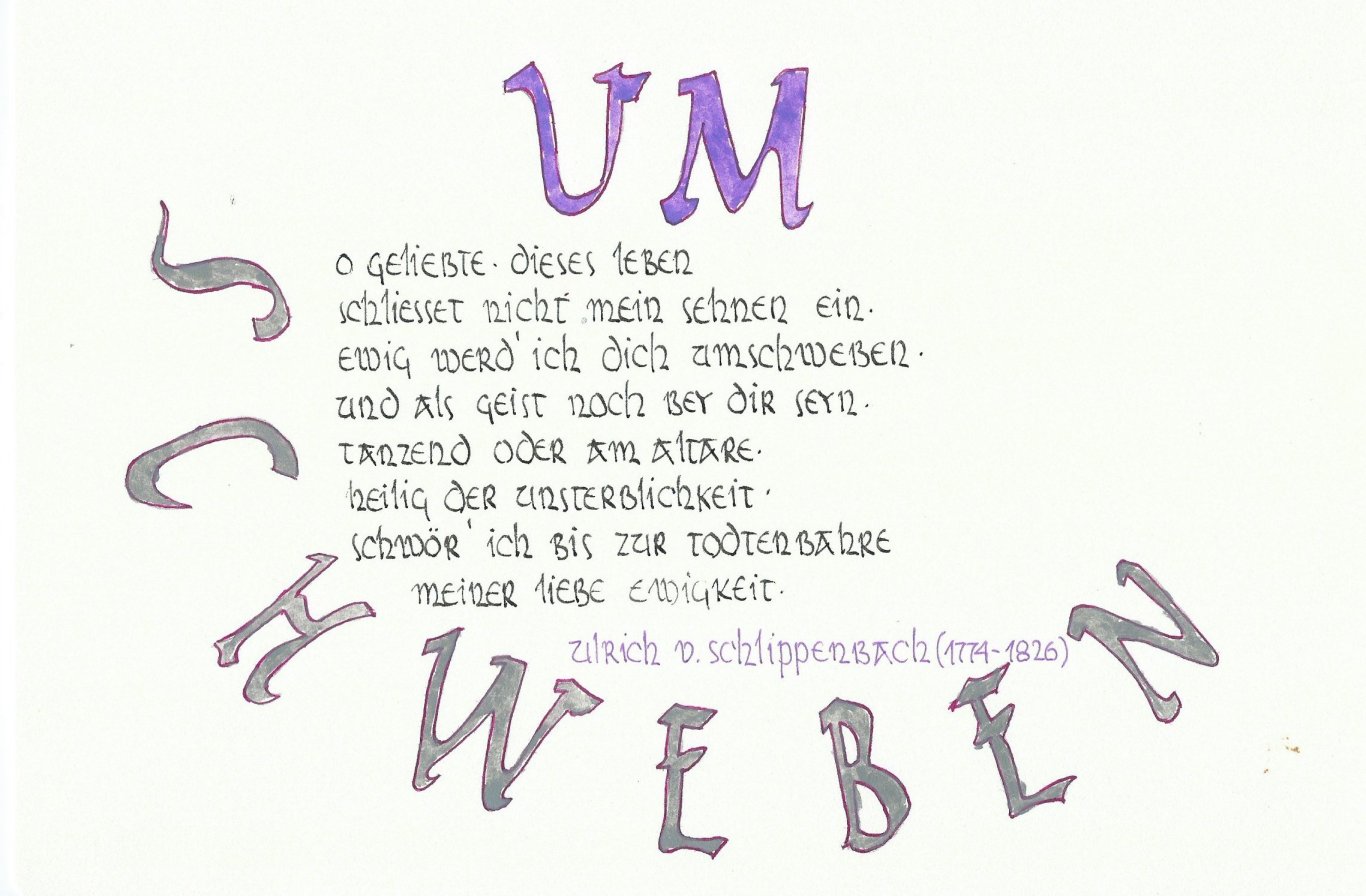 UM
SCHWEBEN
O GELIEBTE. DIESES LEBEN
SCHLIESSET NICHT MEIN SEHNEN EIN.
EWIG WERD' ICH DICH UMSCHWEBEN.
UND ALS GEIST NOCH BEY DIR SEYN.
TANZEND ODER AM ALTARE.
HEILIG DER UNSTERBLICHKEIT.
SCHWÖR' ICH BIS ZUR TODTENBAHRE
MEINER LIEBE EWIGKEIT.
ULRICH V. SCHLIPPENBACH (1774-1826)